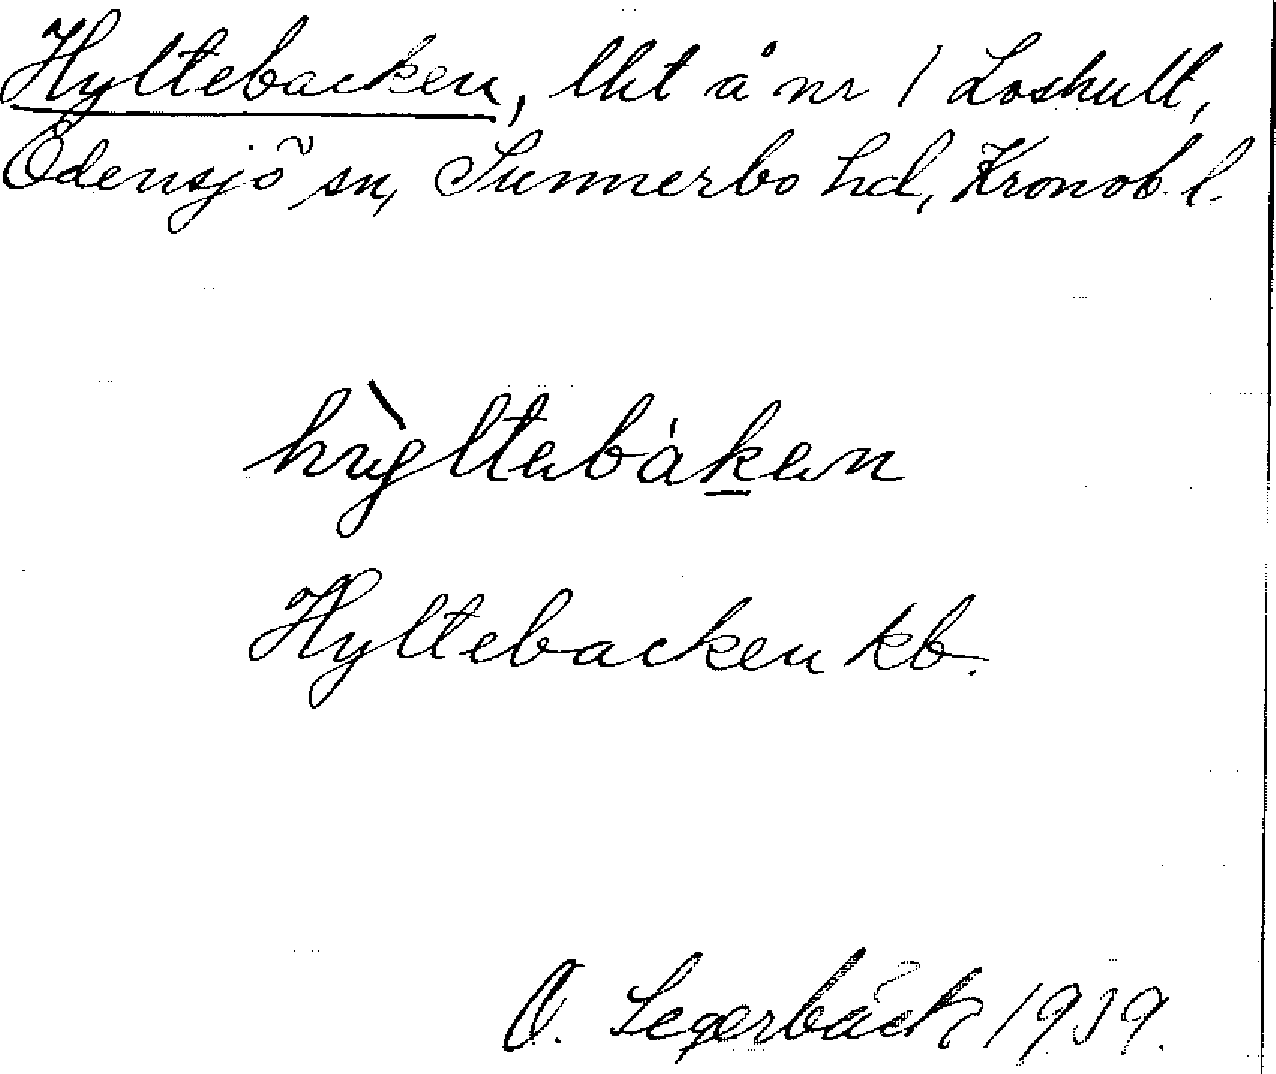 Hyltebacken, lht å nr 1 Loshult,
Odensjö sn, Sunnerbo hd, Kronob. l.
hỳltebàken
Hyltebacken kb.
O. Segerbäck 1939.